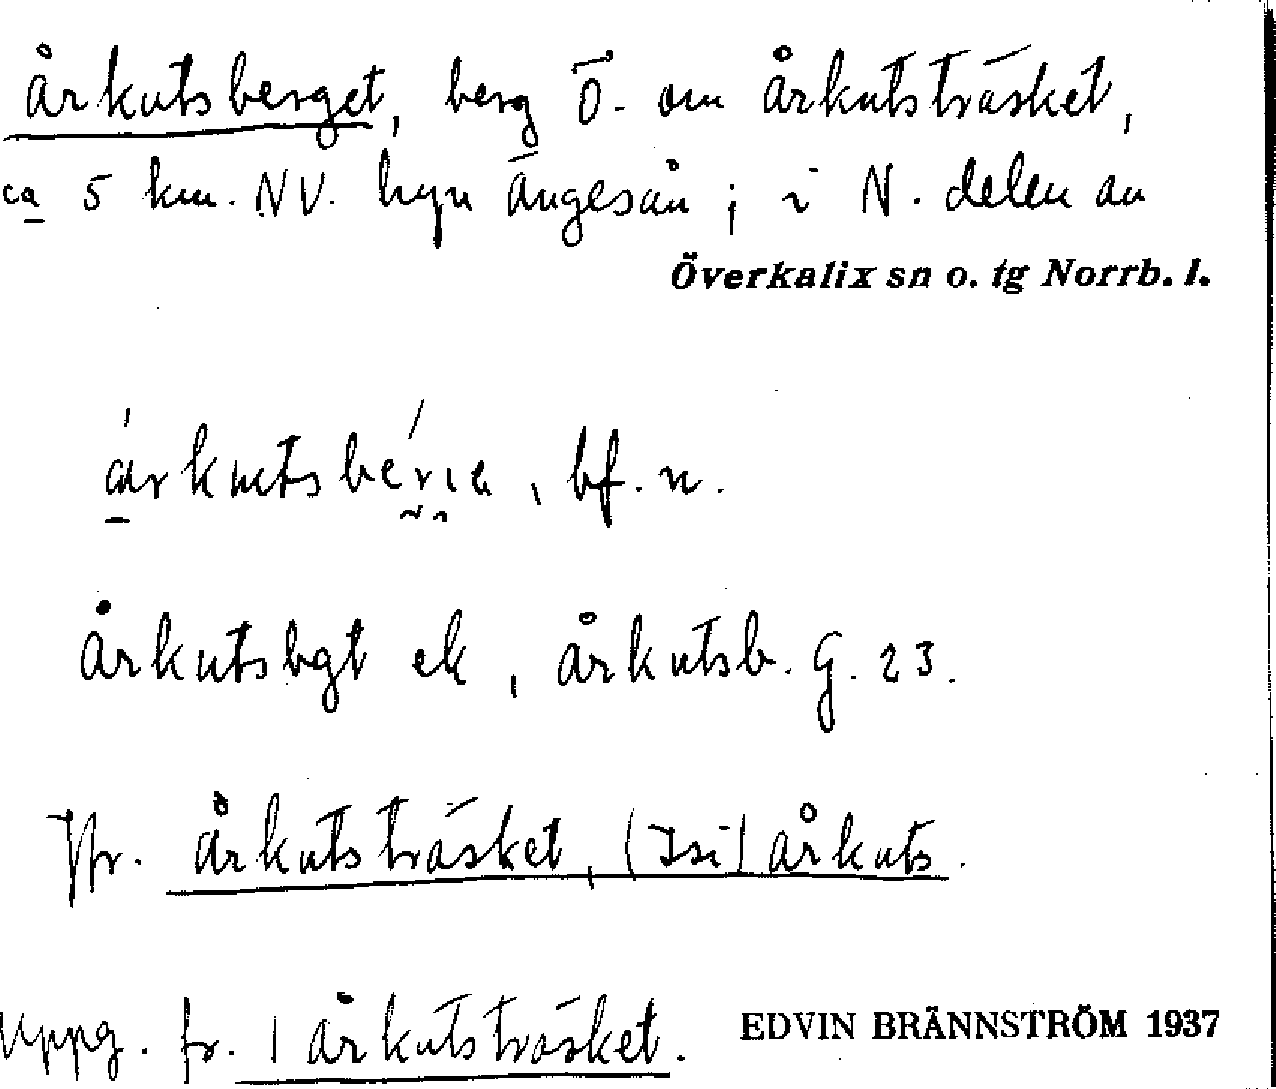 Årkutsberget, berg Ö. om Årkutsträsket,
ca 5 km. NV. byn Ängesån; i N. delen av
Överkalix sn o. tg Norrb. l.
bf. n.
Årkutsbgt ek, Årkutsb. G. 23.
Jfr. Årkutsträsket, (Isi) Årkuts.
Uppg. fr. 1 Årkutsträsket. EDVIN BRÄNNSTRÖM 1937